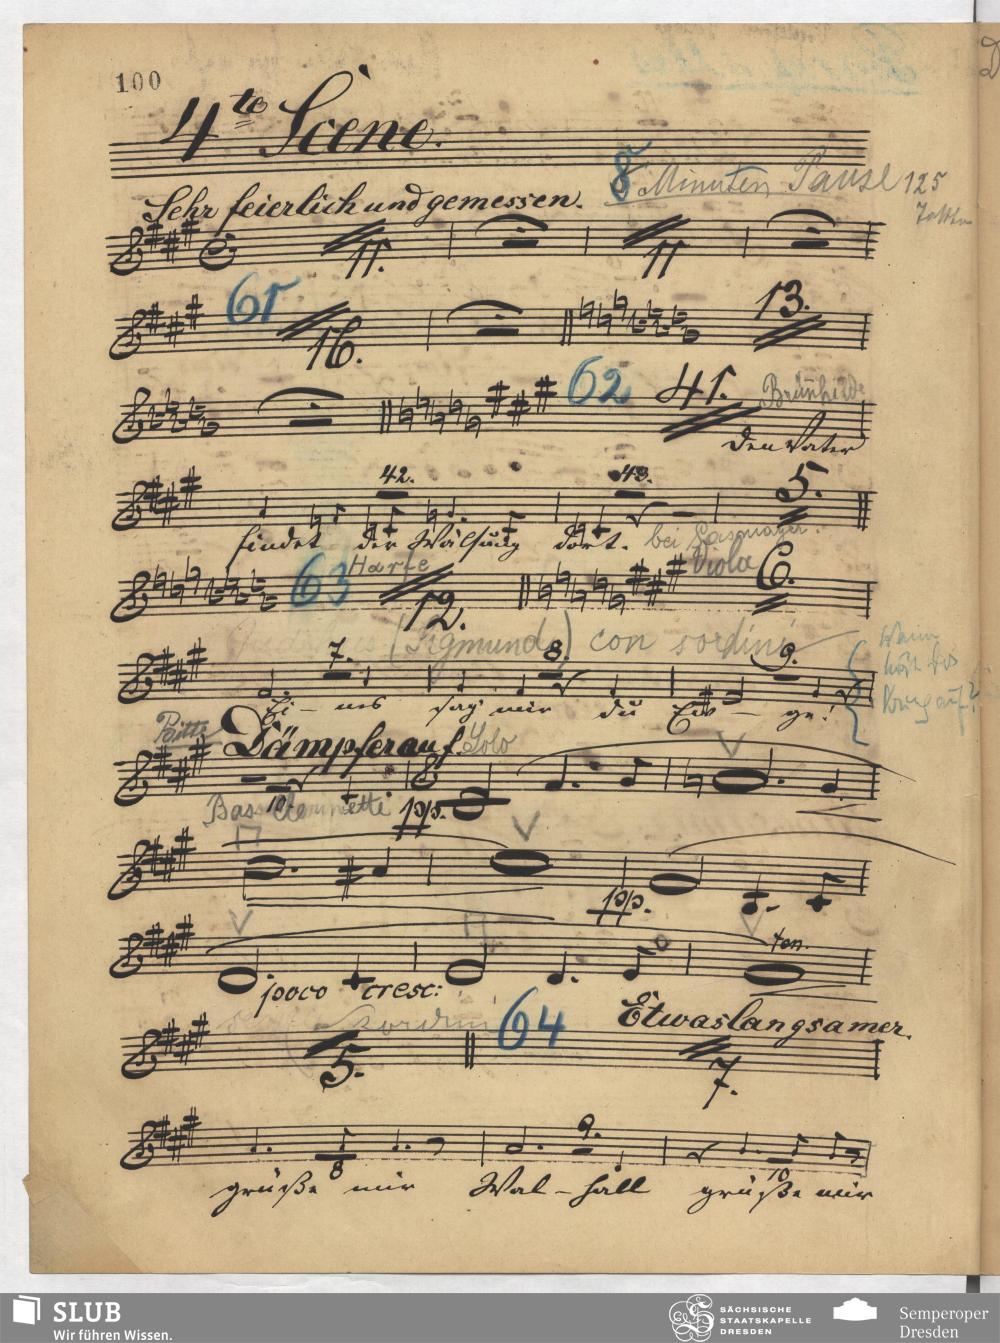 100
4te Scene.
8 Minuten Pause 125
Sehr feierlich und gemessen.
11. 11
61 16. 13.
62 41. Brünhilde
Den Vater
42. 43. 5.
findet der Wälsung dort. bei
63 Harfe 12. Viola 6.
(Sigmund) con sordini
7. 8. 9.
Ei-nes sag' mir du Ew-ge!
Dämpfer auf. Solo
10
Bassclarinette pp.
pp.
ten.
poco cresc:
Sordini 64 Etwas langsamer.
5. 7.
8 9. 10
grüße mir Wal-hall grüße mir
SLUB
Wir führen Wissen.
SÄCHSISCHE
STAATSKAPELLE
DRESDEN
Semperoper
Dresden